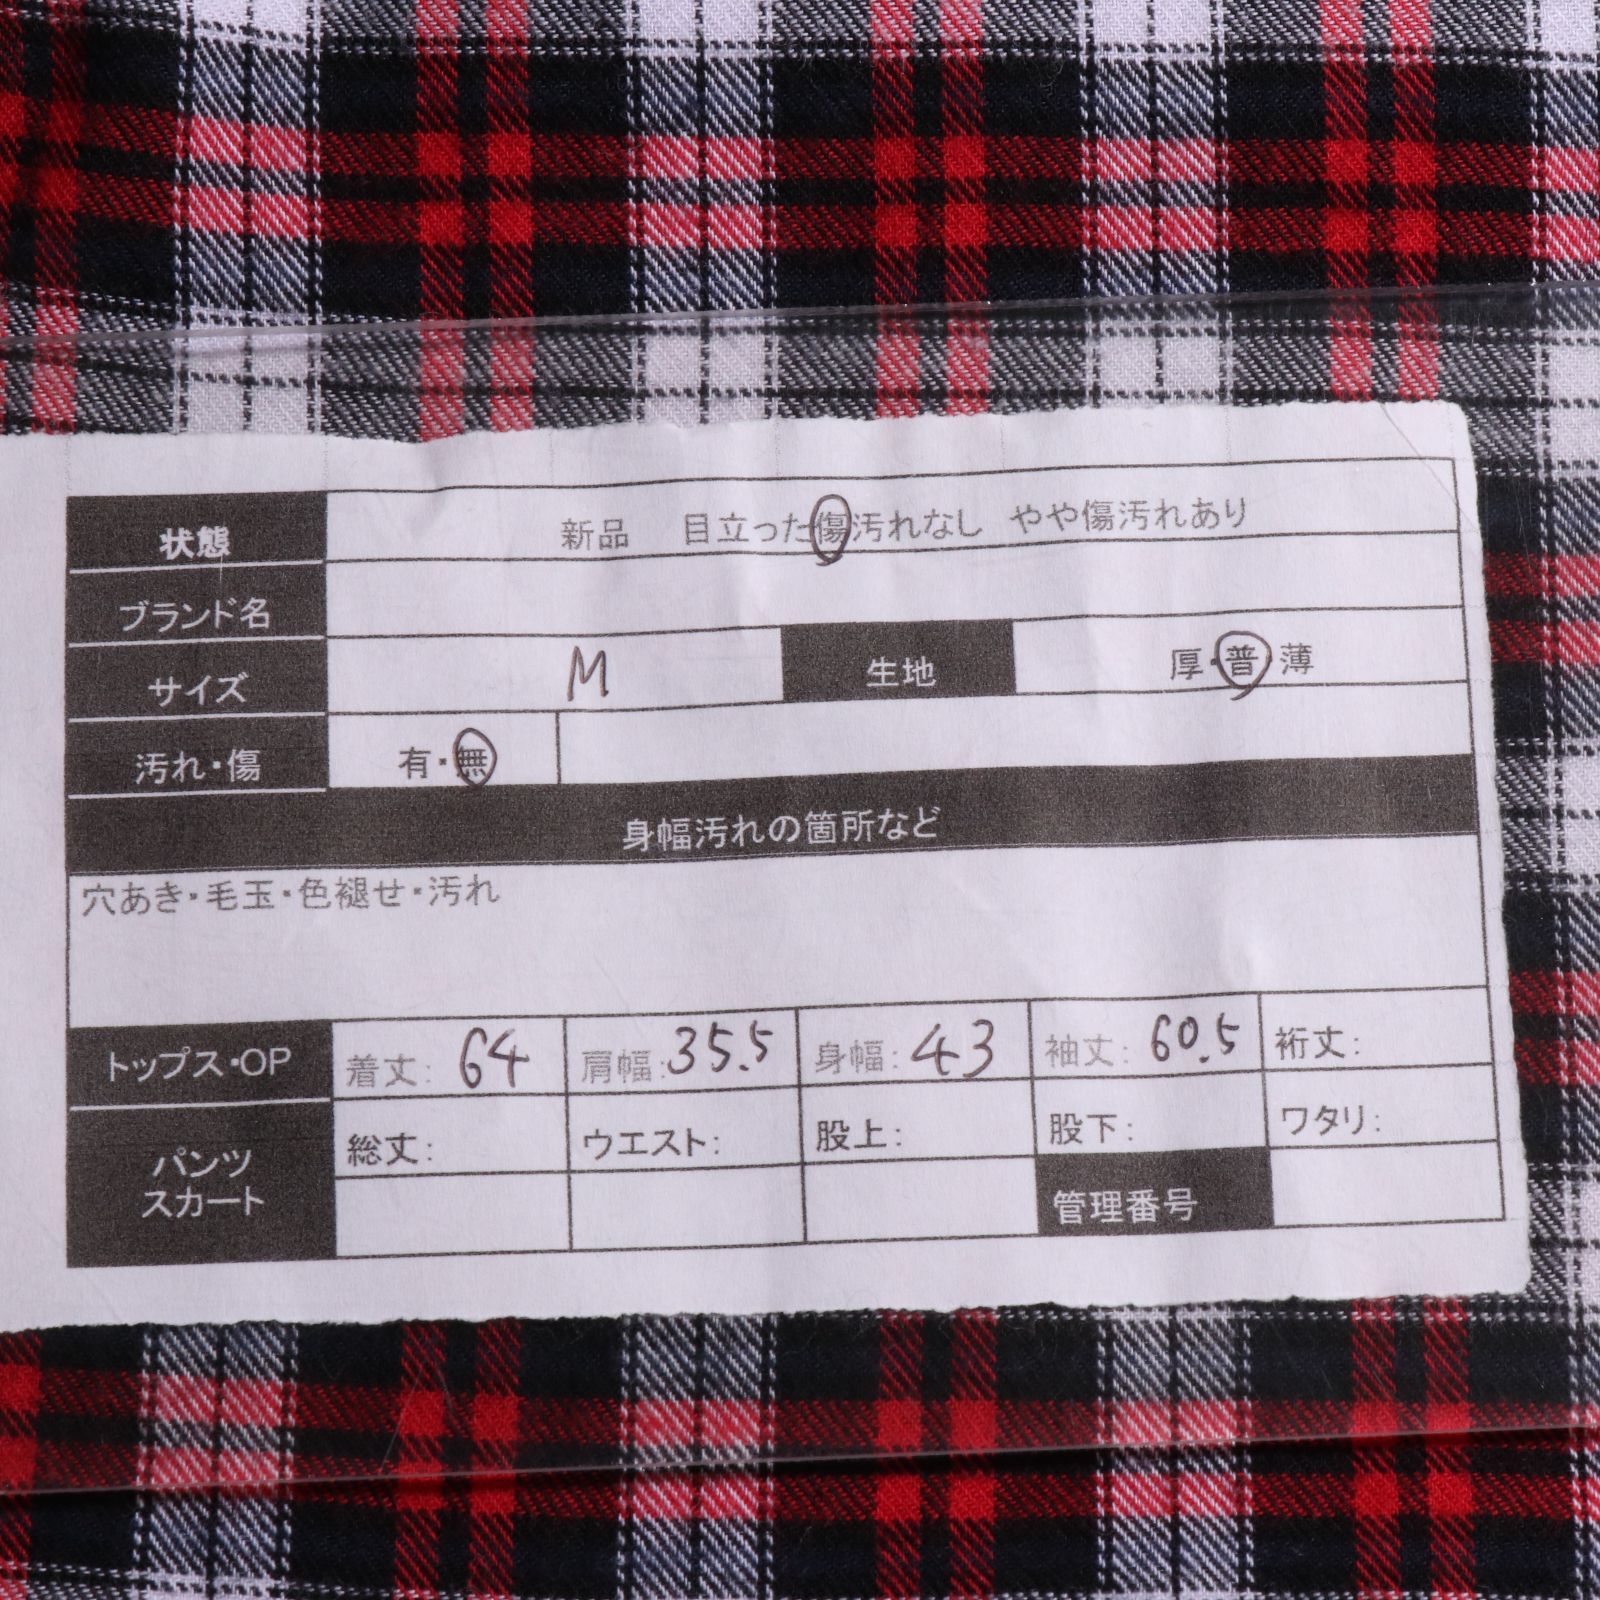 状態 新品 目立った傷汚れなし やや傷汚れあり
ブランド名
サイズ M 生地 厚・普・薄
汚れ・傷 有・無
身幅汚れの箇所など
穴あき・毛玉・色褪せ・汚れ
トップス・OP 着丈: 64 肩幅: 35.5 身幅: 43 袖丈: 60.5 裄丈:
パンツ スカート 総丈: ウエスト: 股上: 股下: ワタリ:
管理番号